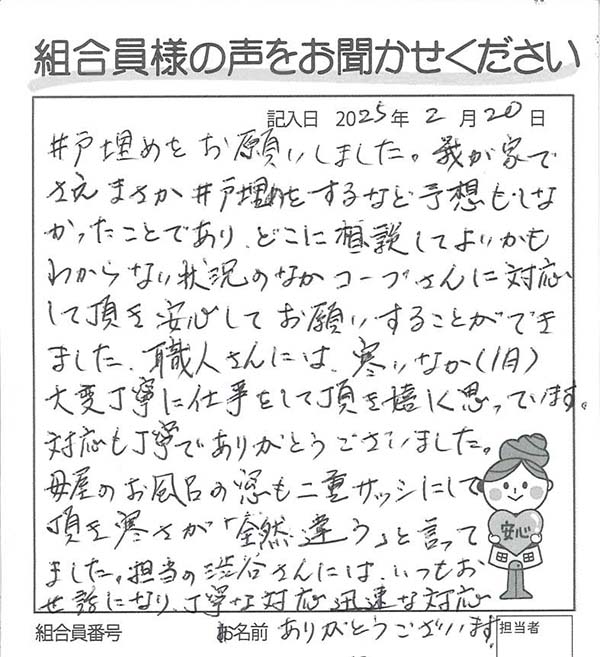 組合員様の声をお聞かせください
記入日 2025年 2月20日
井戸埋めをお願いしました。我が家で
さえまさか井戸埋めをするなど予想もしな
かったことであり、どこに相談してよいかも
わからない状況のなかコープさんに対応
して頂き安心してお願いすることができ
ました、職人さんには、寒いなか(1月)
大変丁寧に仕事をして頂き嬉しく思っています。
対応も丁寧でありがとうございました。
母屋のお風呂の窓も二重サッシにして
頂き寒さが「全然違う」と言って
ました。担当の渋谷さんには、いつもお
世話になり、丁寧な対応 迅速な対応
安心
組合員番号 お名前 ありがとうございます 担当者